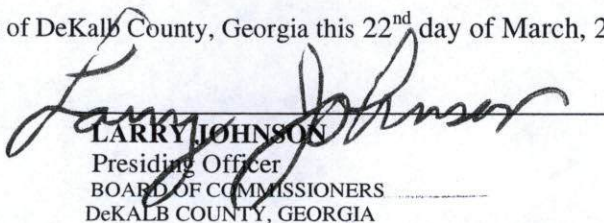 of DeKalb County, Georgia this 22nd day of March, 2
Larry Johnson
LARRY JOHNSON
Presiding Officer
BOARD OF COMMISSIONERS
DeKALB COUNTY, GEORGIA